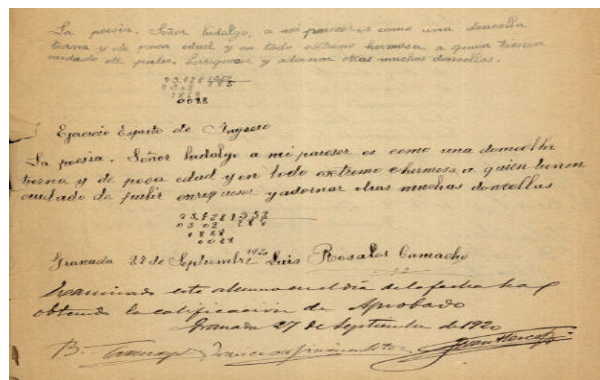 La poesia. Señor hidalgo, a mi pareser es como una doncella
tierna y de poca edad y en todo extremo hermosa, a quien tienen
cuidado de pulir. Enriqueser y adornar otras muchas doncellas.
0028
Ejercicio Esprito de Ingreso
La poesia. Señor hidalgo a mi pareser es como una domcella
tierna y de poca edad y en todo extremo ehermosa a quien tienen
cuidado de pulir enriqueser y adornar otras muchas doncellas
0028
Granada 27 de Septiembre 1920 Luis Rosales Camacho
Examinado este alumno en el día de la fecha ha
obtenido la calificación de Aprobado
Granada 27 de Septiembre de 1920